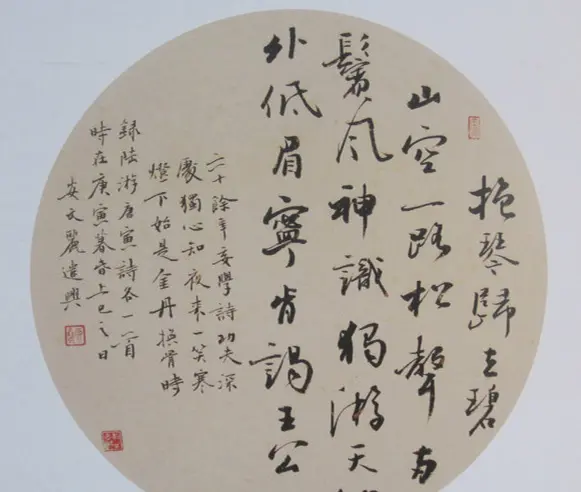 抱琴歸去碧
山空一路松聲両
鬢風神識獨游天
外低眉寧肯謁王公
六十餘年妄學詩功夫深
處獨心知夜來一笑寒
燈下始是金丹換骨時
錄陸游唐寅詩各一首
時在庚寅暮春上巳之日
安文麗遣興